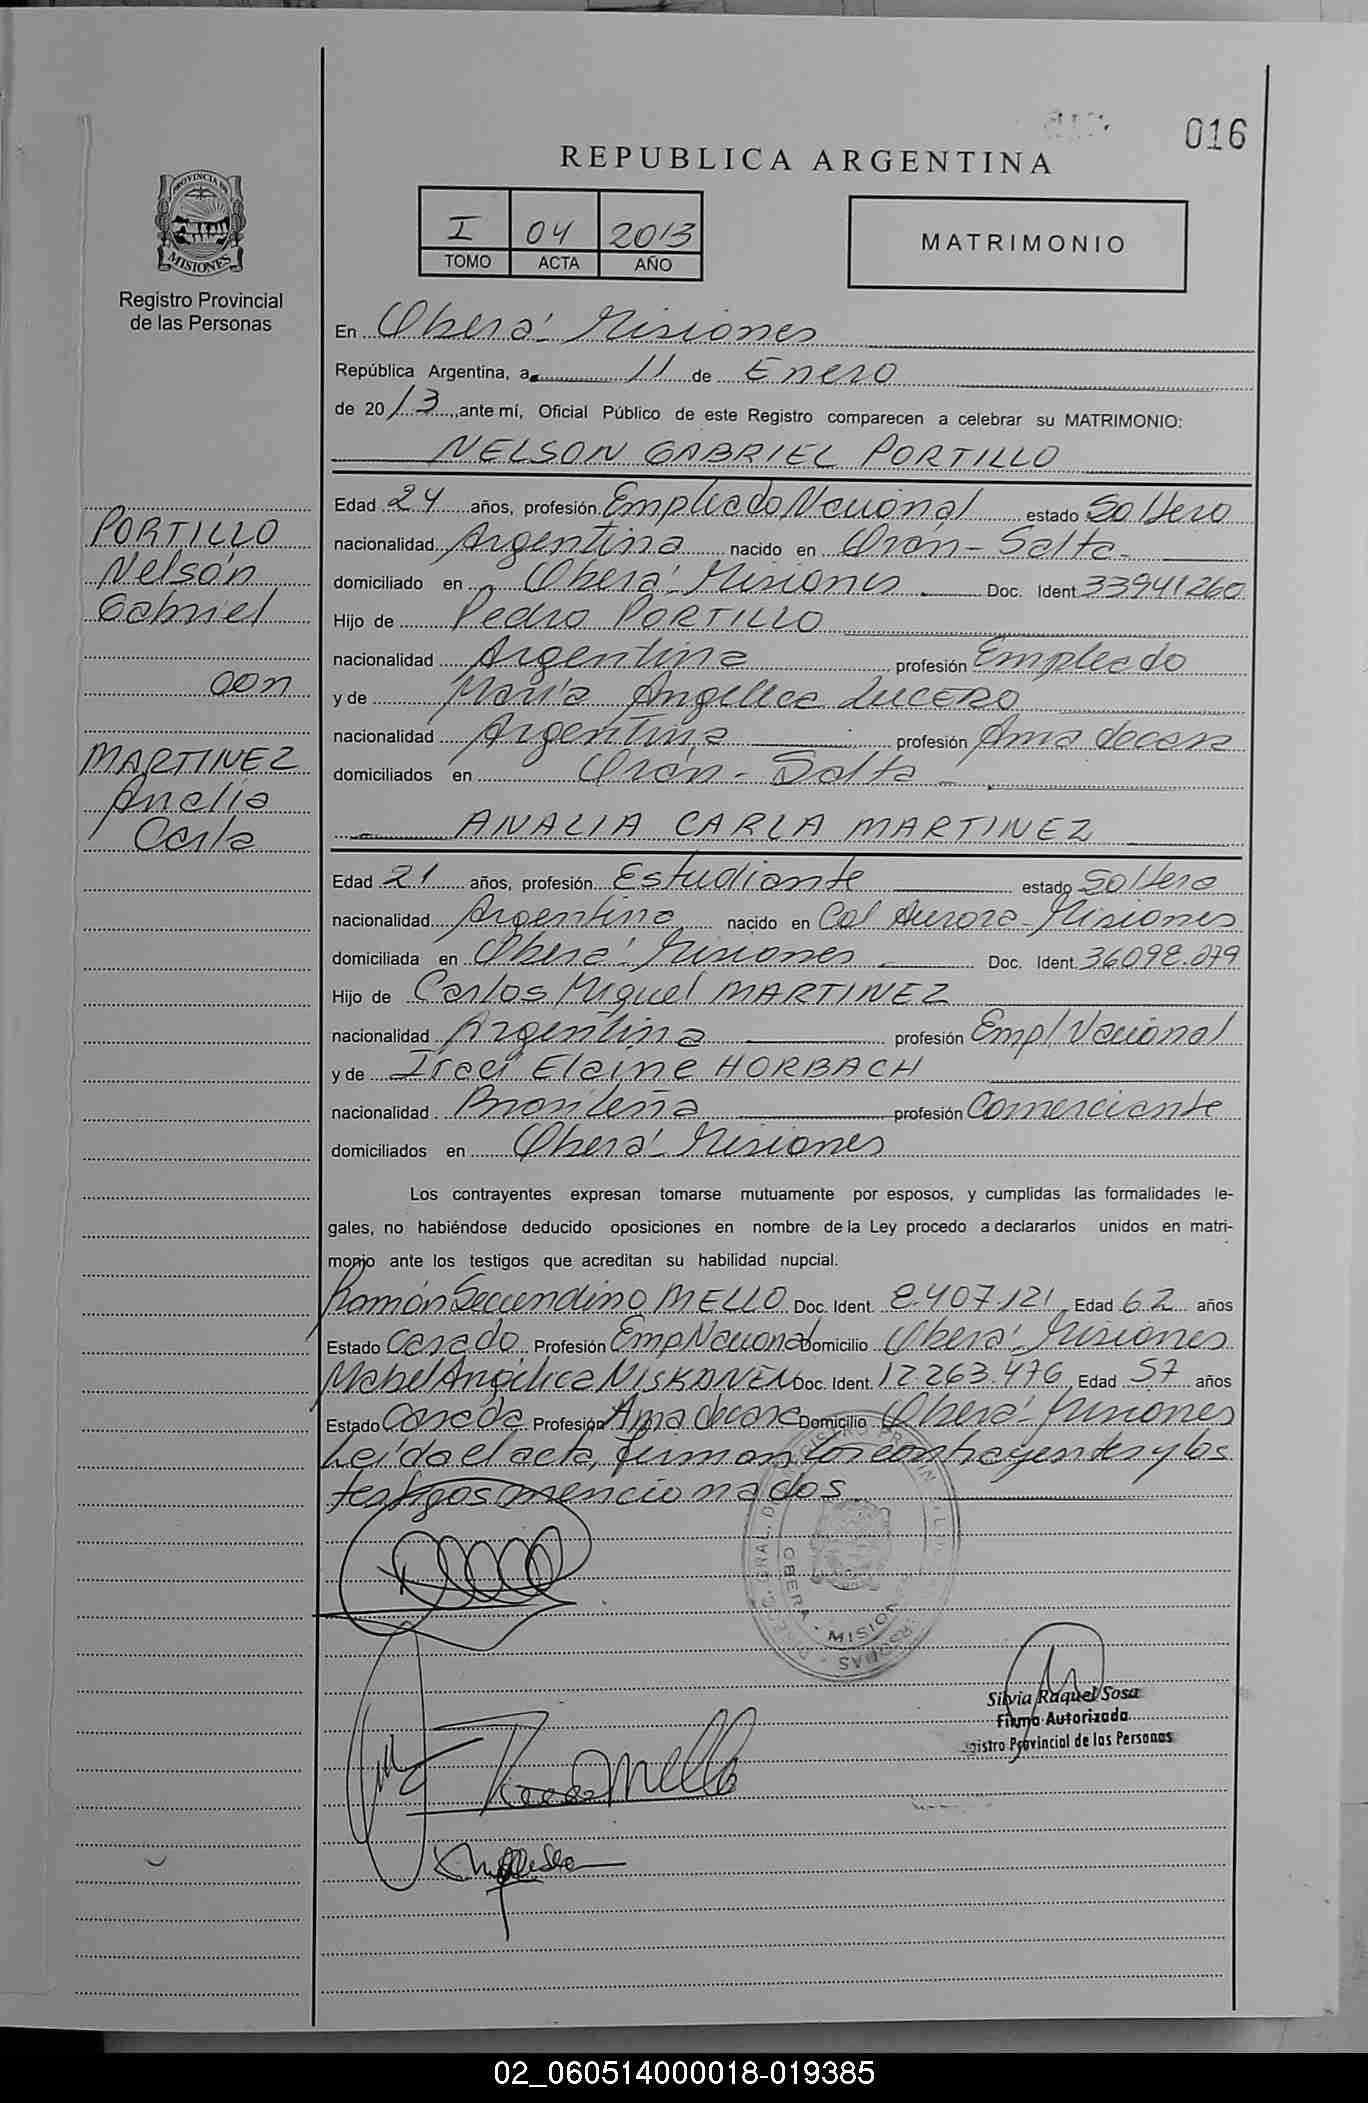 016
REPUBLICA ARGENTINA
PROVINCIA DE
MISIONES
Registro Provincial
de las Personas
I 04 2013
TOMO ACTA AÑO
MATRIMONIO
En Oberá - Misiones
República Argentina, a 11 de Enero
de 2013, ante mí, Oficial Público de este Registro comparecen a celebrar su MATRIMONIO:
NELSON GABRIEL PORTILLO
PORTILLO
Nelson
Gabriel
con
MARTINEZ
Analia
Carla
Edad 24 años, profesión Empleado Nacional estado Soltero
nacionalidad Argentina nacido en Orán - Salta
domiciliado en Oberá - Misiones Doc. Ident 33941260
Hijo de Pedro PORTILLO
nacionalidad Argentina profesión Empleado
y de María Angelica LUCERO
nacionalidad Argentina profesión Ama de casa
domiciliados en Orán - Salta
ANALIA CARLA MARTINEZ
Edad 21 años, profesión Estudiante estado Soltera
nacionalidad Argentina nacido en Col Aurora - Misiones
domiciliada en Oberá - Misiones Doc. Ident. 36098.079
Hijo de Carlos Miguel MARTINEZ
nacionalidad Argentina profesión Empl Nacional
y de Iraci Elaine HORBACH
nacionalidad Brasileña profesión Comerciante
domiciliados en Oberá - Misiones
Los contrayentes expresan tomarse mutuamente por esposos, y cumplidas las formalidades le-
gales, no habiéndose deducido oposiciones en nombre de la Ley procedo a declararlos unidos en matri-
monio ante los testigos que acreditan su habilidad nupcial.
Ramón Secundino MELLO Doc. Ident. 8.407.121 Edad 62 años
Estado Casado Profesión Emp Nacional Domicilio Oberá - Misiones
Mabel Angélica NISKANEN Doc. Ident. 12.263.476 Edad 57 años
Estado Casada Profesión Ama de casa Domicilio Oberá - Misiones
Leída el acta, firman los contrayentes y los
testigos mencionados
OBERA - MISIONES
Silvia Raquel Sosa
Firma Autorizada
Registro Provincial de las Personas
02_060514000018-019385